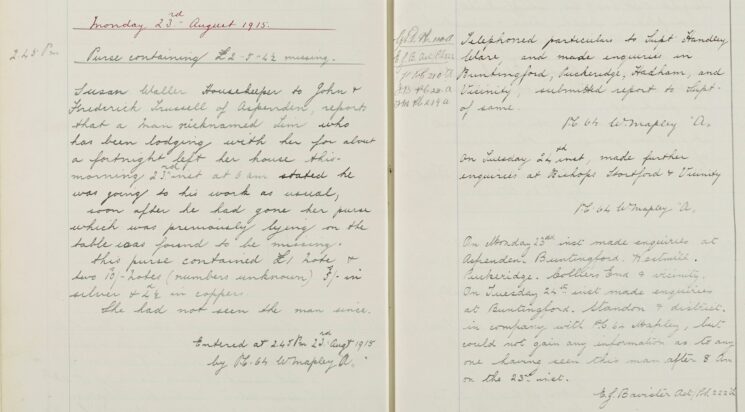 Monday 23rd August 1915.
2.45 Pm
Purse containing £2-5-4½ missing.
Susan Waller Housekeeper to John &
Frederick Trussell of Aspenden, reports
that a man nicknamed Jim who
has been lodging with her for about
a fortnight left her house this
morning 23rd inst at 6 am stated he
was going to his work as usual,
soon after he had gone her purse
which was previously lying on the
table was found to be missing.
This purse contained £1 note &
two 10/- notes (numbers unknown) 5/- in
silver & 4½ in coppers
She had not seen the man since.
Entered at 2.45 Pm 23rd Augt 1915
by P.C. 64 W Mapley A.
Telephoned particulars to Supt Handley
Ware, and made enquiries in
Buntingford, Puckeridge, Hadham, and
Vicinity, submitted report to Supt.
of same.
P.C. 64 W Mapley "A.
On Tuesday 24th inst, made further
enquiries at Bishops Stortford & Vicinity
P.C. 64 W Mapley "A.
On Monday 23rd inst made enquiries at
Aspenden. Buntingford. Westmill.
Puckeridge. Colliers End & vicinity.
On Tuesday 24th inst made enquiries
at Buntingford. Standon & district.
in company with P.C. 64 Mapley, but
could not gain any information as to any
one having seen this man after 8 Am
on the 23rd inst.
E.J. Bavister Act. P.S. 222